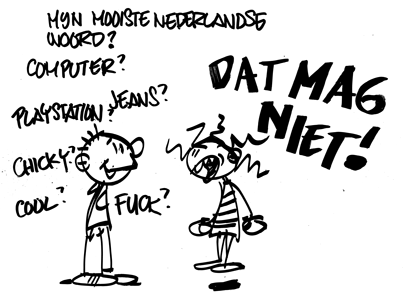 MIJN MOOISTE NEDERLANDSE
WOORD?
COMPUTER?
PLAYSTATION? JEANS?
CHICKY?
COOL? FUCK?
DAT MAG
NIET!